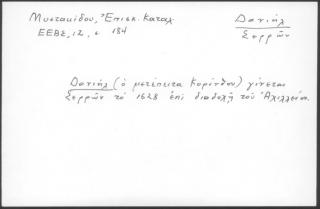 Μυστακίδου, Ἐπισκ. Καταλ.
ΕΕΒΣ, 12, σ 184
Δανιήλ
Σερρῶν
Δανιήλ (ὁ μετέπειτα Κορίνθου) γίνεται
Σερρῶν τὸ 1628 ἐπὶ διαδοχῇ τοῦ Ἀχιλλείου.